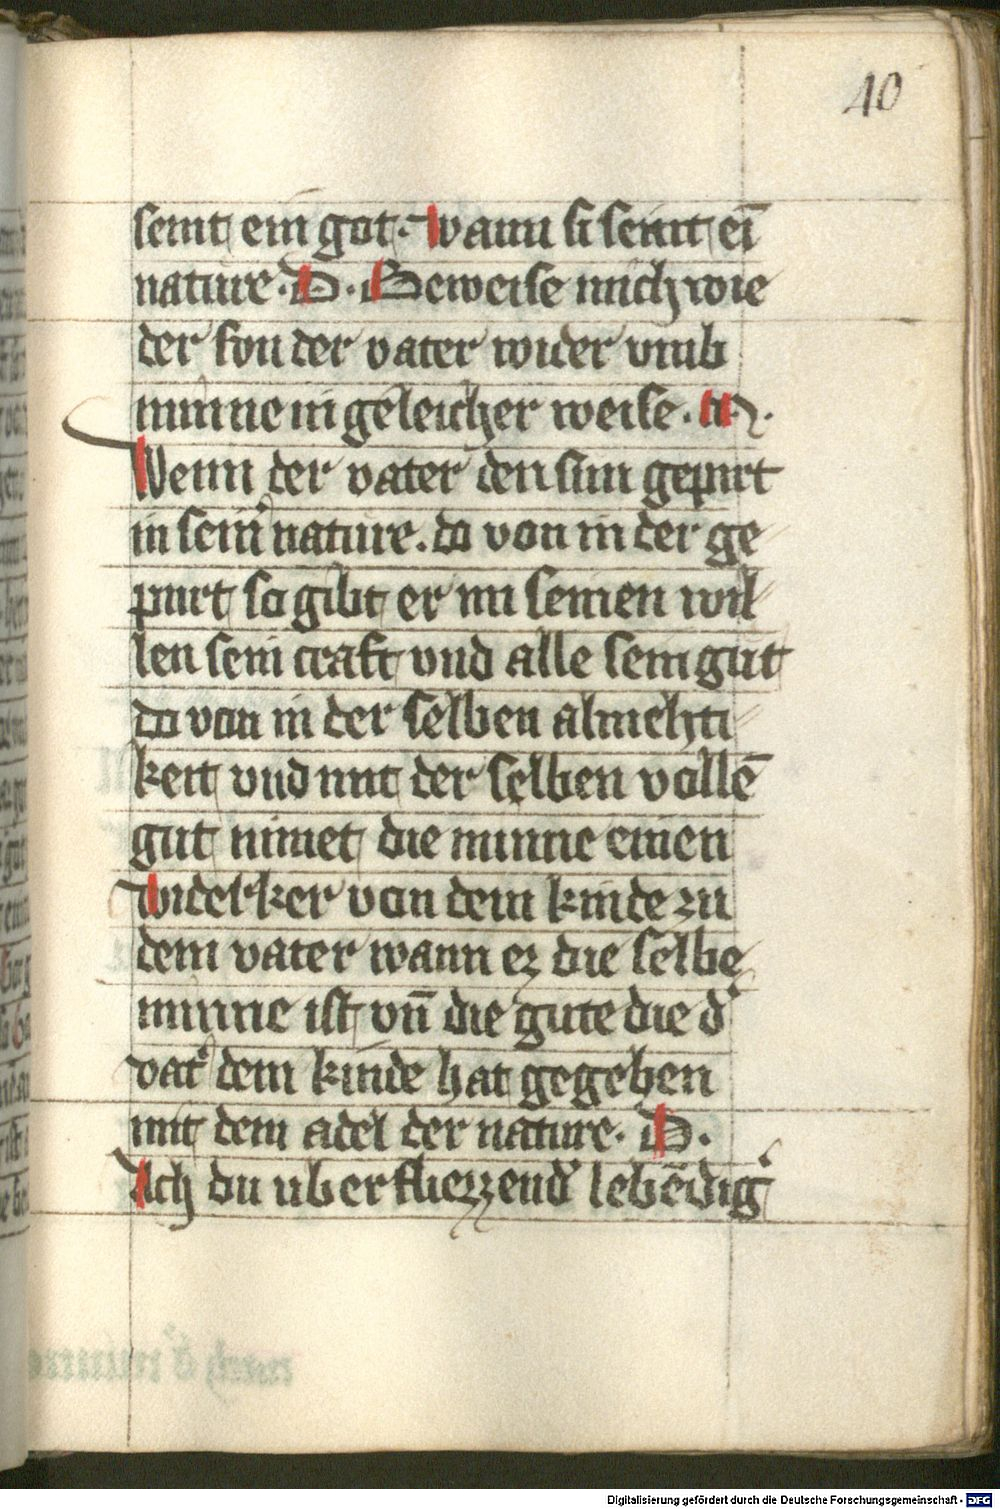 40
seint ein got. wann si seint eī
nature. D. Beweise mich wie
der son der vater wider vmb
minne in geleicher weise. A.
Wenn der vater den sun gepirt
in seinr nature. do von in der ge
purt so gibt er im seinen wil
len sein craft vnd alle sein gut
do von in der selben almehti
keit vnd mit der selben vollē
gut nimet die minne einen
widerker von dem kinde zu
dem vater wann ez die selbe
minne ist vn̄ die gute die d'
vat' dem kinde hat gegeben
mit dem adel der nature. D.
Ach du uberfliezzend' lebēdig'
Digitalisierung gefördert durch die Deutsche Forschungsgemeinschaft - DFG